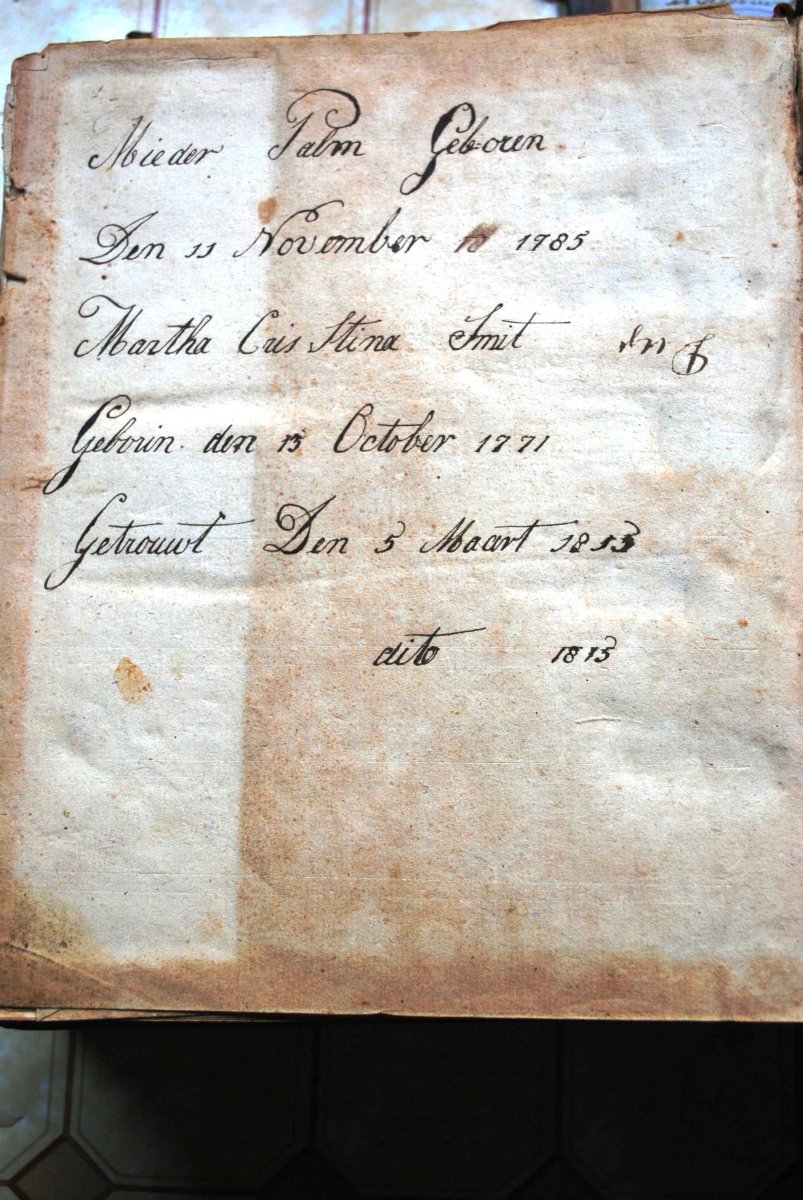 Mieder Palm Geboren
Den 11 November 1785
Martha Cris Stina Smit
Geborin den 13 October 1771
Getrouwt Den 5 Maart 1813
dito 1813